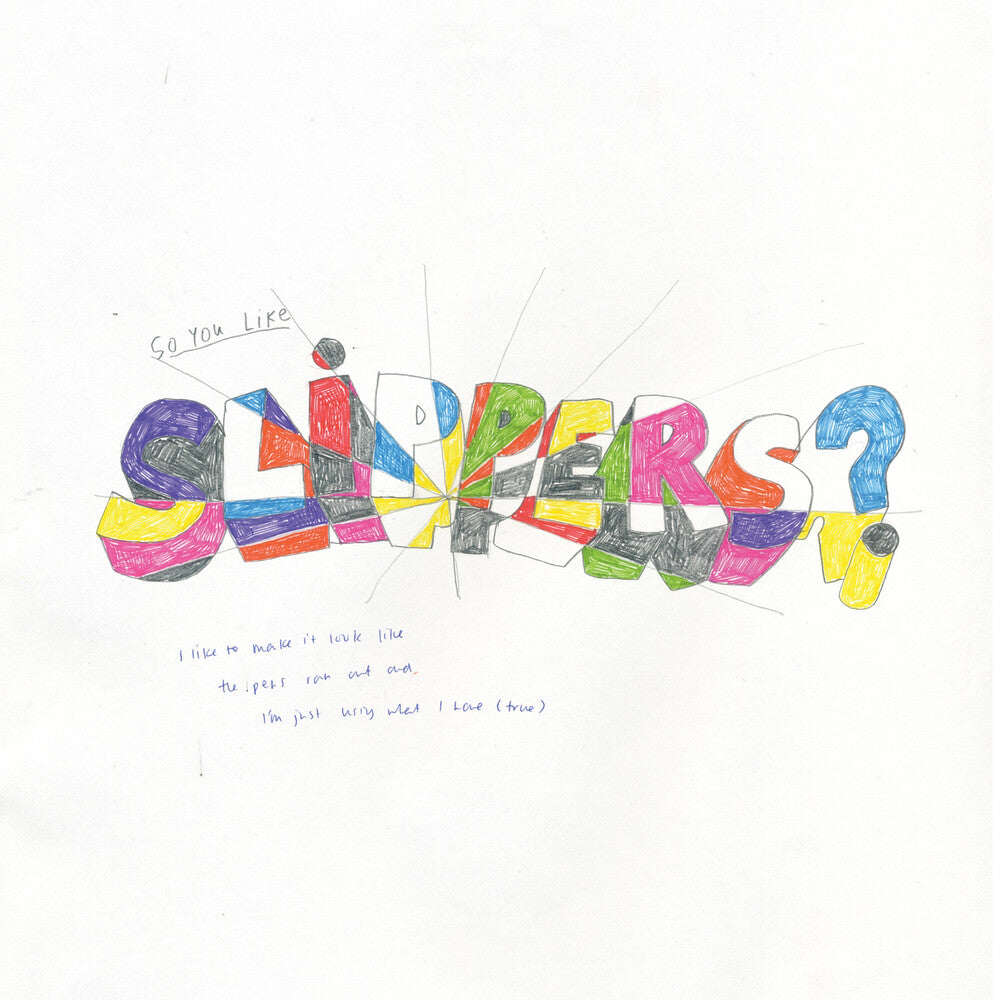 SO YOU LIKE
SLiPPERS?
I like to make it look like
the pens ran out and
I'm just using what I have (true)